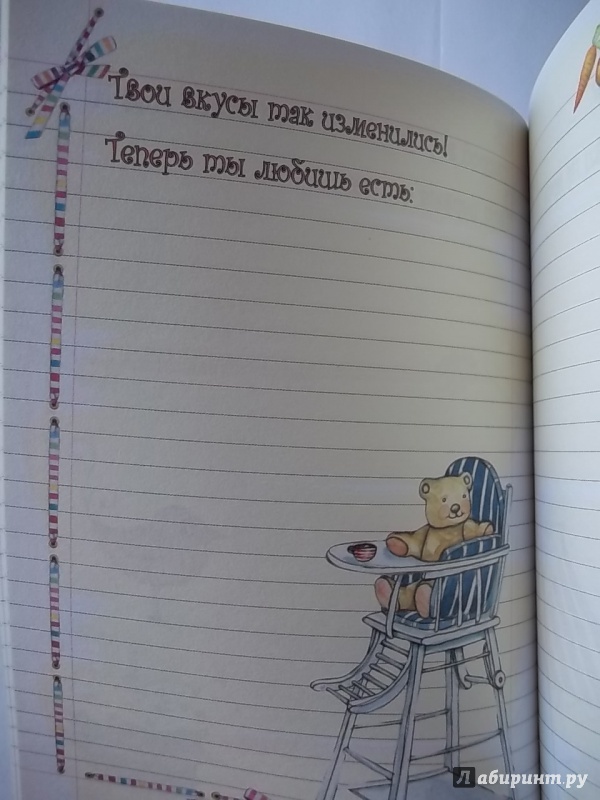 Твои вкусы так изменились!
Теперь ты любишь есть:
Лабиринт.ру